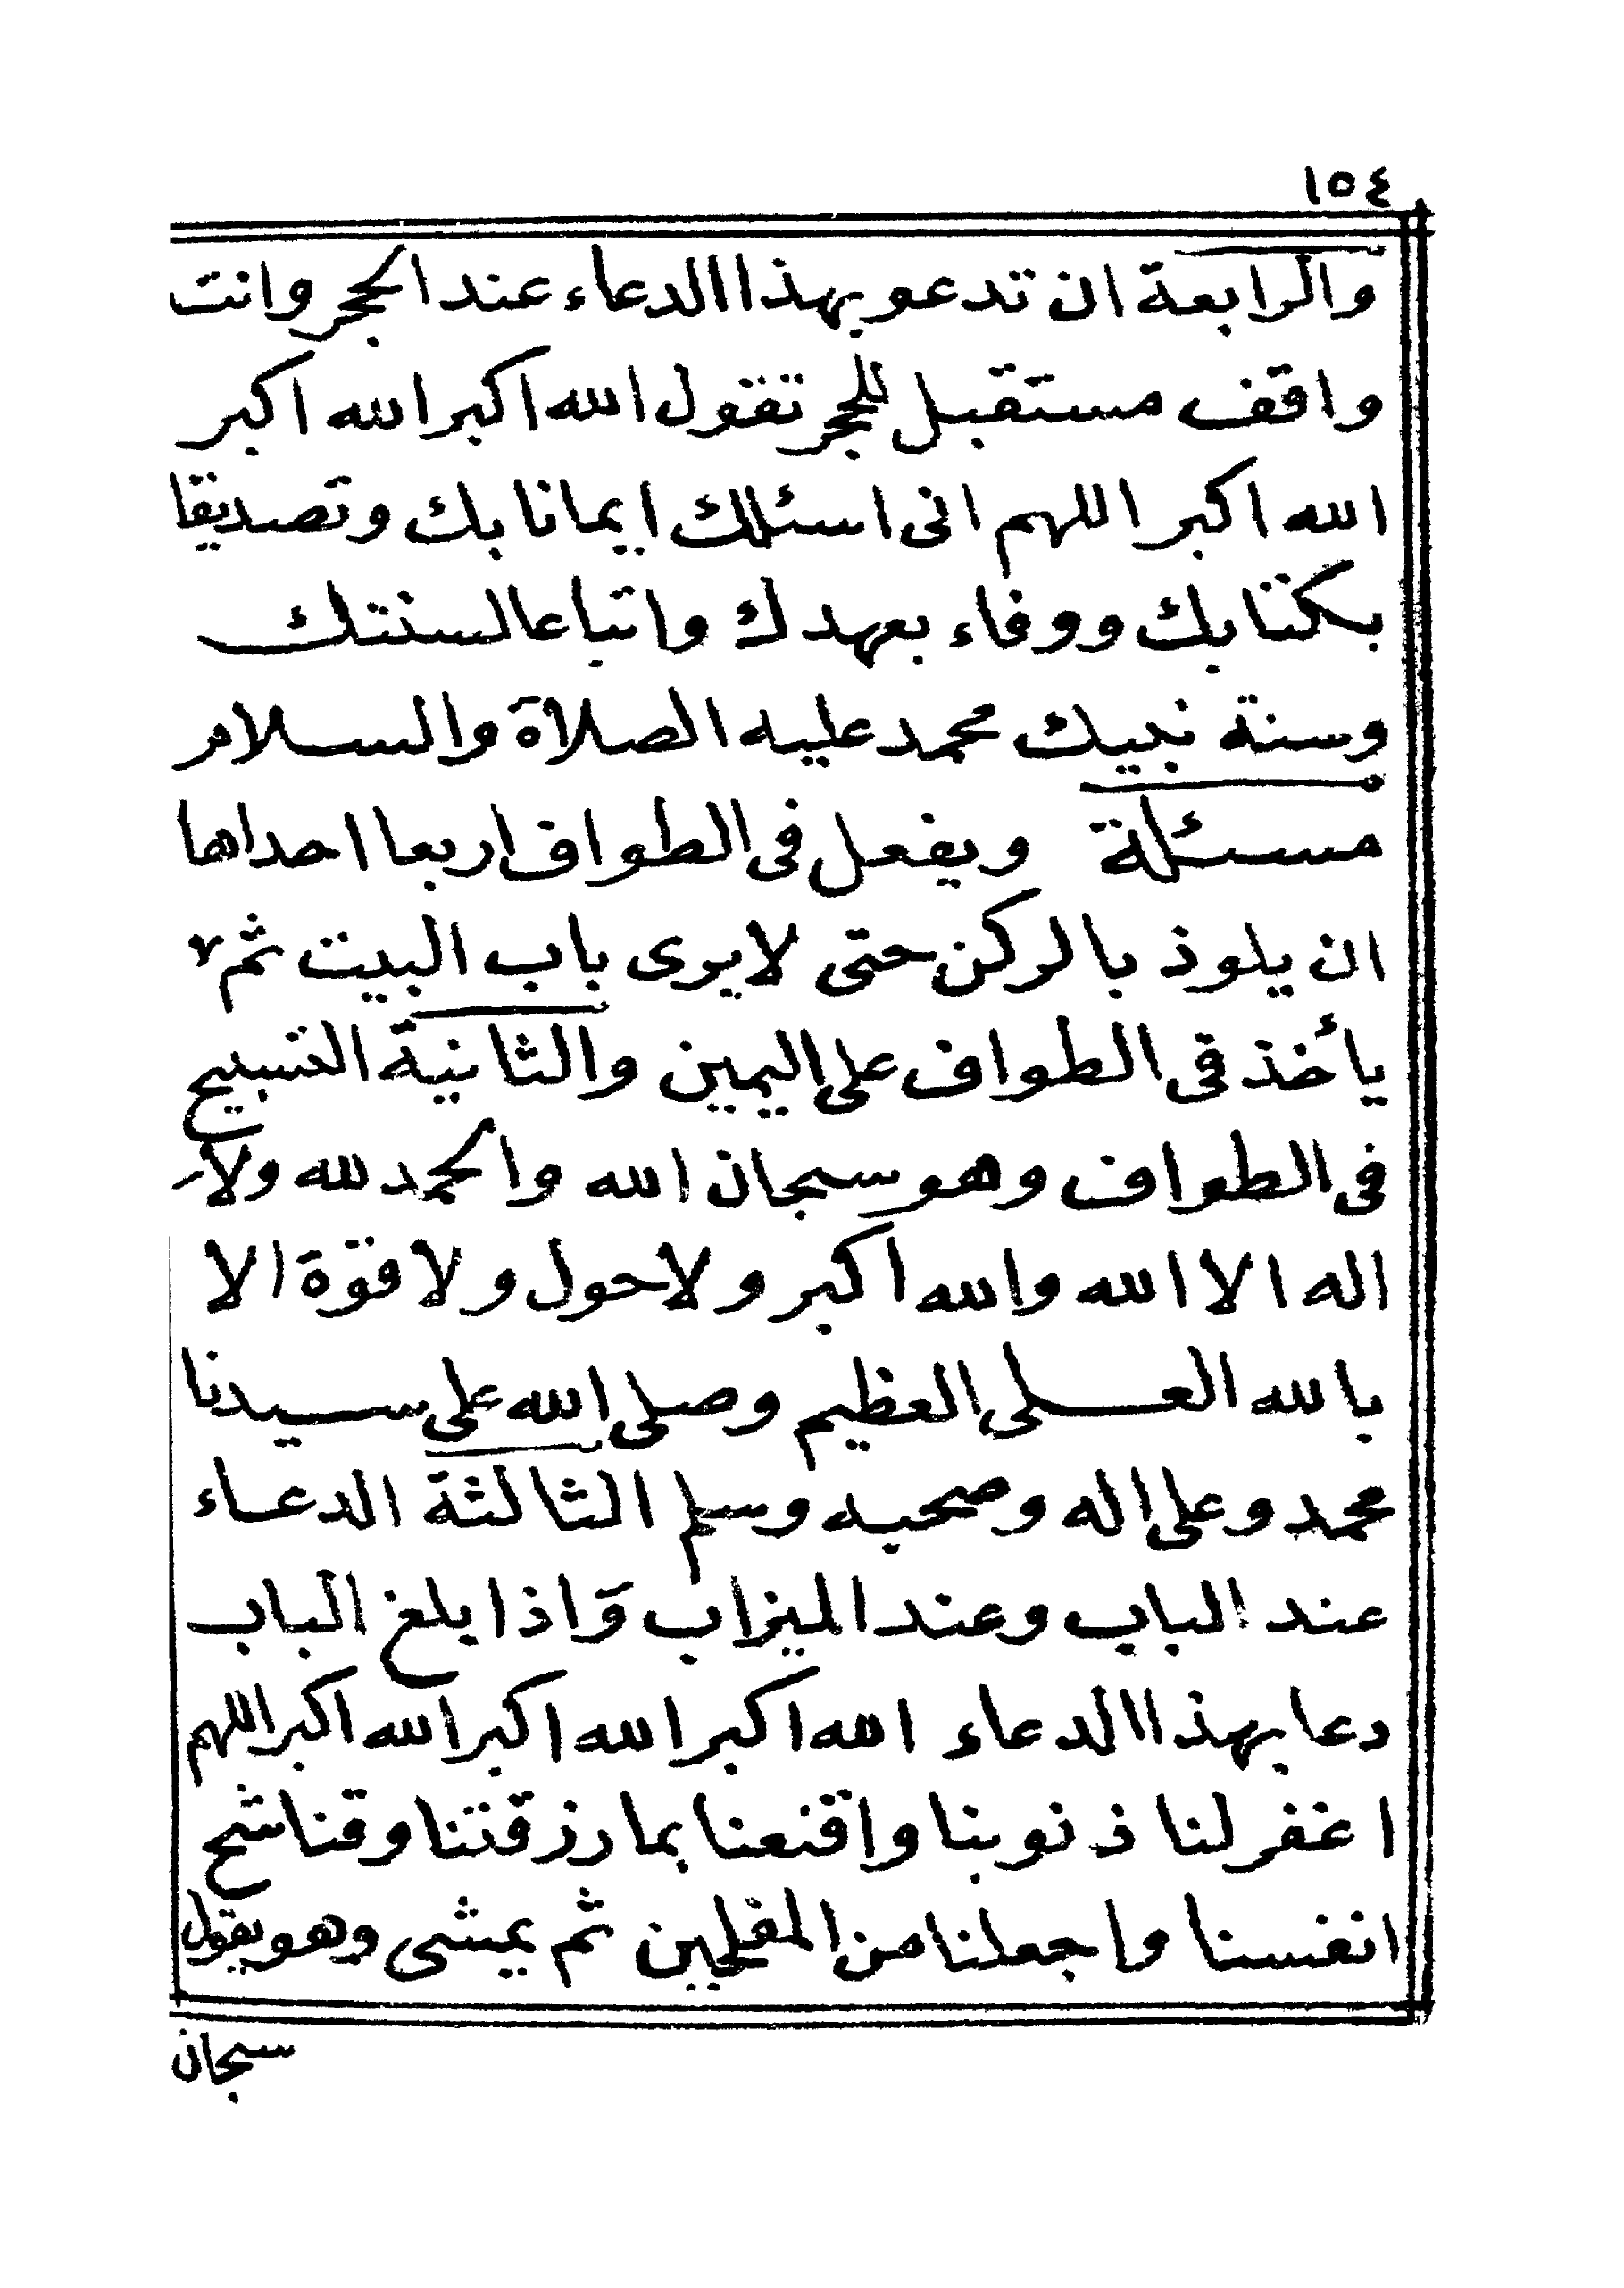 ١٥٤
والرابعة ان تدعو بهذا الدعاء عند الحجر وانت
واقف مستقبل للحجر تقول الله اكبر الله اكبر
الله اكبر اللهم انى اسئلك ايمانا بك وتصديقا
بكتابك ووفاء بعهدك واتباعا لسنتك
وسنة نبيك محمد عليه الصلاة والسلام
مسئلة ويفعل فى الطواف اربعا احداها
ان يلوذ بالركن حتى لايرى باب البيت ثم
يأخذ فى الطواف على اليمين والثانية التسبيح
فى الطواف وهو سبحان الله والحمد لله ولا
اله الا الله والله اكبر ولاحول ولا قوّة الا
بالله العلى العظيم وصلى الله على سيدنا
محمد وعلى اله وصحبه وسلم الثالثة الدعاء
عند الباب وعند الميزاب وَاذا بلغ الباب
دعا بهذا الدعاء الله اكبر الله اكبر الله اكبر اللهم
اغفر لنا ذنوبنا واقنعنا بما رزقتنا وقنا شح
انفسنا واجعلنا من المفلحين ثم يمشى وهو يقول
سبحان